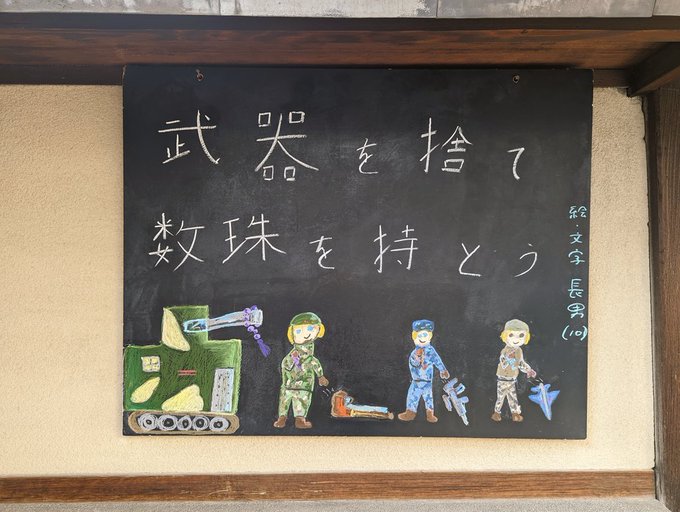 武器を捨て
数珠を持とう
絵・文字 長男(10)